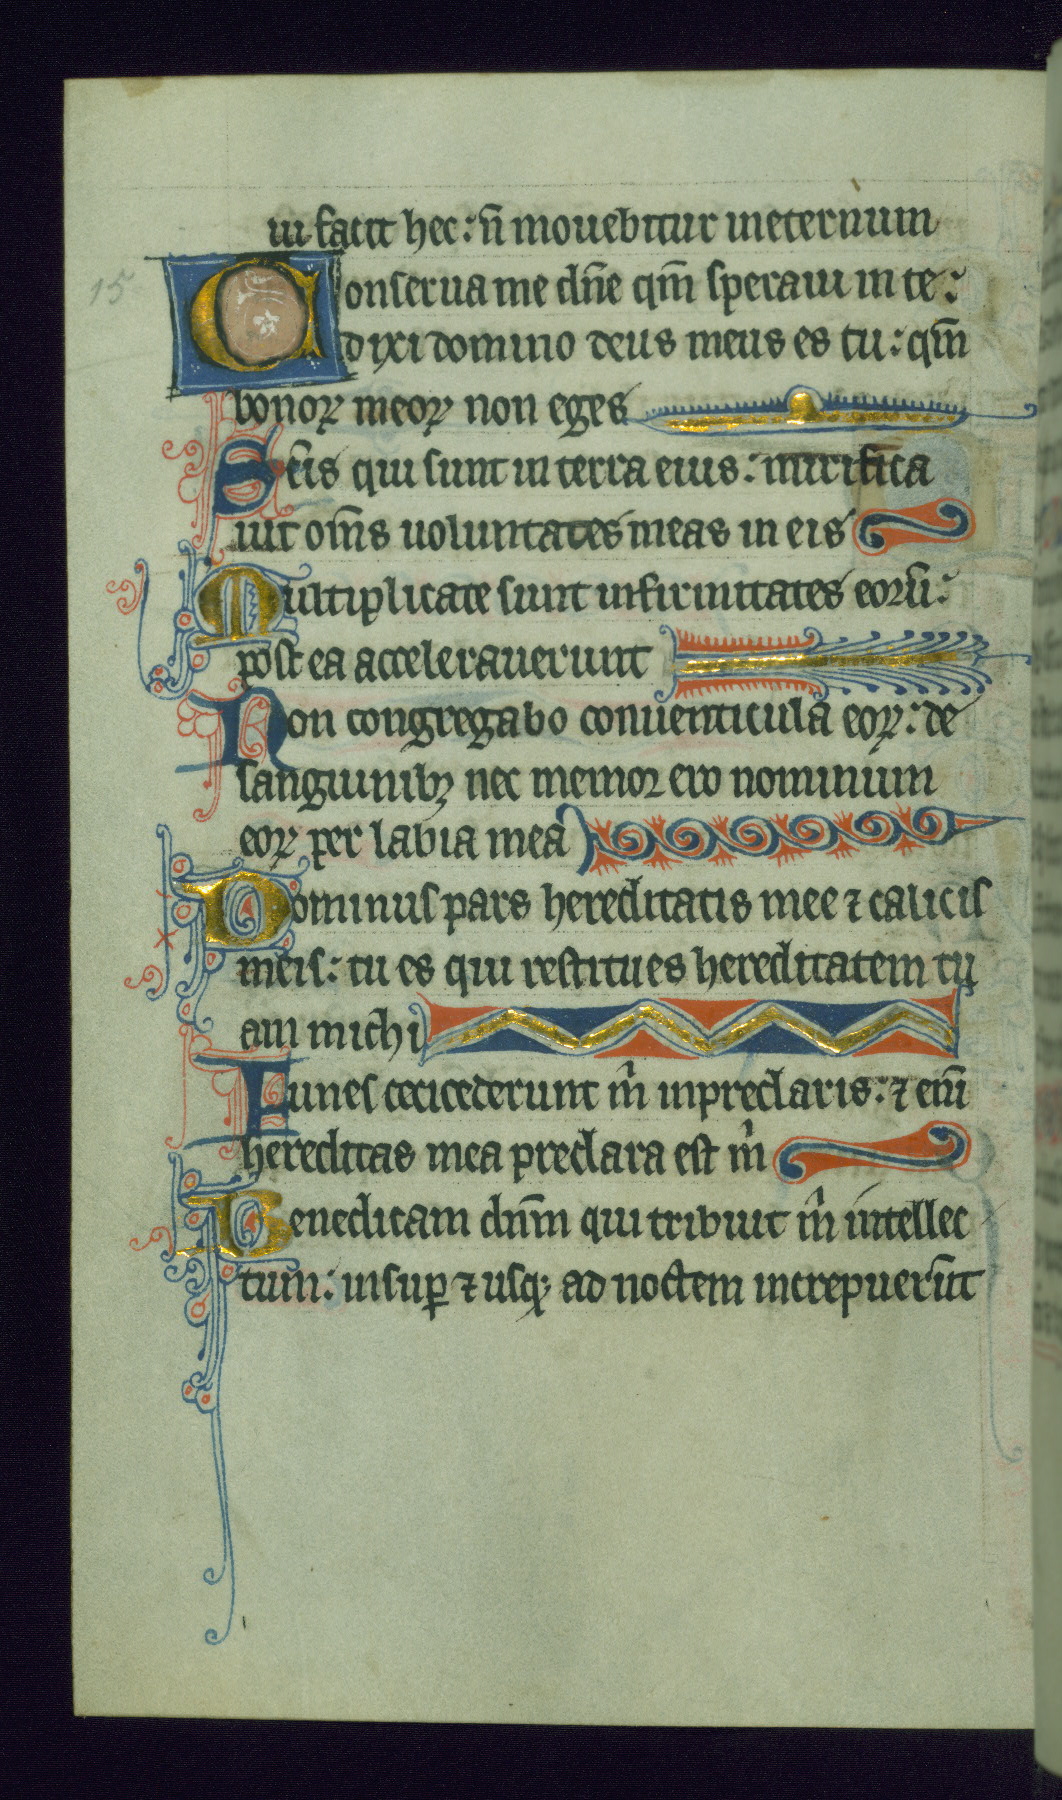 ui facit hec: ñ mouebitur ineternum
15 Conserua me dñe qm̃ speraui in te:
dixi domino deus meus es tu: qm̃
bonoꝝ meoꝝ non eges
Sc̃is qui sunt in terra eius: mirifica
uit om̃s uoluntates meas in eis
Multiplicate sunt infirmitates eorũ:
post ea accelerauerunt
Non congregabo conuenticula eoꝝ: de
sanguinibꝫ nec memor ero nominum
eoꝝ per labia mea
Dominus pars hereditatis mee ⁊ calicis
meis: tu es qui restitues hereditatem tu
am michi
Funes cecicederunt m̃ inpreclaris: ⁊ eni͂
hereditas mea preclara est m̃
Benedicam dñm qui tribuit m̃ intellec
tum: insuꝑ ⁊ usqꝫ ad noctem increpuerũt